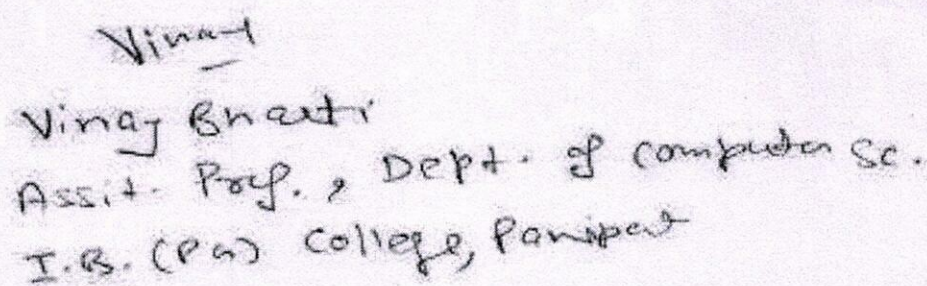 Vinay
Vinay Bharti
Assit. Prof., Dept. of Computer Sc.
I.B. (PG) College, Panipat